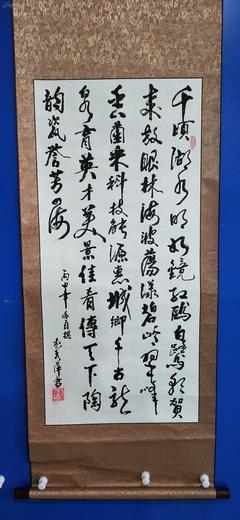 千顷湖水明如镜红鸥白鹭贺
来放眼林海波荡漾碧岭翠峰
菌来科技能源惠城乡千古龙
泉育英才美景佳肴傳天下陶
韵瓷誉芳四海
丙申年自撰